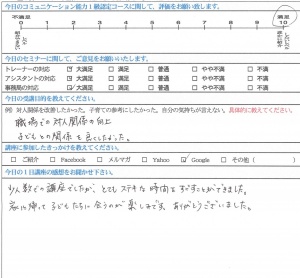 今日のコミュニケーション能力1級認定コースに関して、評価をお願い致します。
不満足 満足
0 10
今日のセミナーに関して、ご意見をお聞かせ下さい。
トレーナーの対応 大満足 満足 普通 やや不満 不満
アシスタントの対応 大満足 満足 普通 やや不満 不満
事務局の対応 大満足 満足 普通 やや不満 不満
今日の受講目的を教えてください。
例) 対人関係を改善したかった。子育ての参考にしたかった。自分の気持ちが言えない。具体的に教えてください。
職場での対人関係の向上
子どもとの関係を良くしたかった。
講座に参加したきっかけを教えてください。
ご紹介 Facebook メルマガ Yahoo Google その他 ( )
今日の1日講座の感想をお聞かせ下さい。
少人数での講座でしたが、とてもステキな時間をすごすことができました。
家に帰って子どもたちに会うのが楽しみです。ありがとうございました。